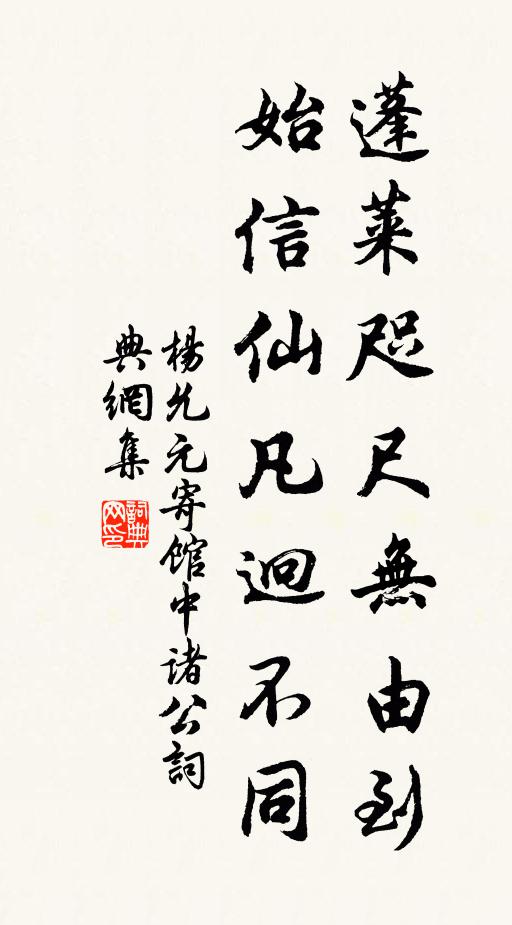 蓬萊咫尺無由到
始信仙凡迥不同
楊允元寄館中諸公詞
典網集
詞典网印